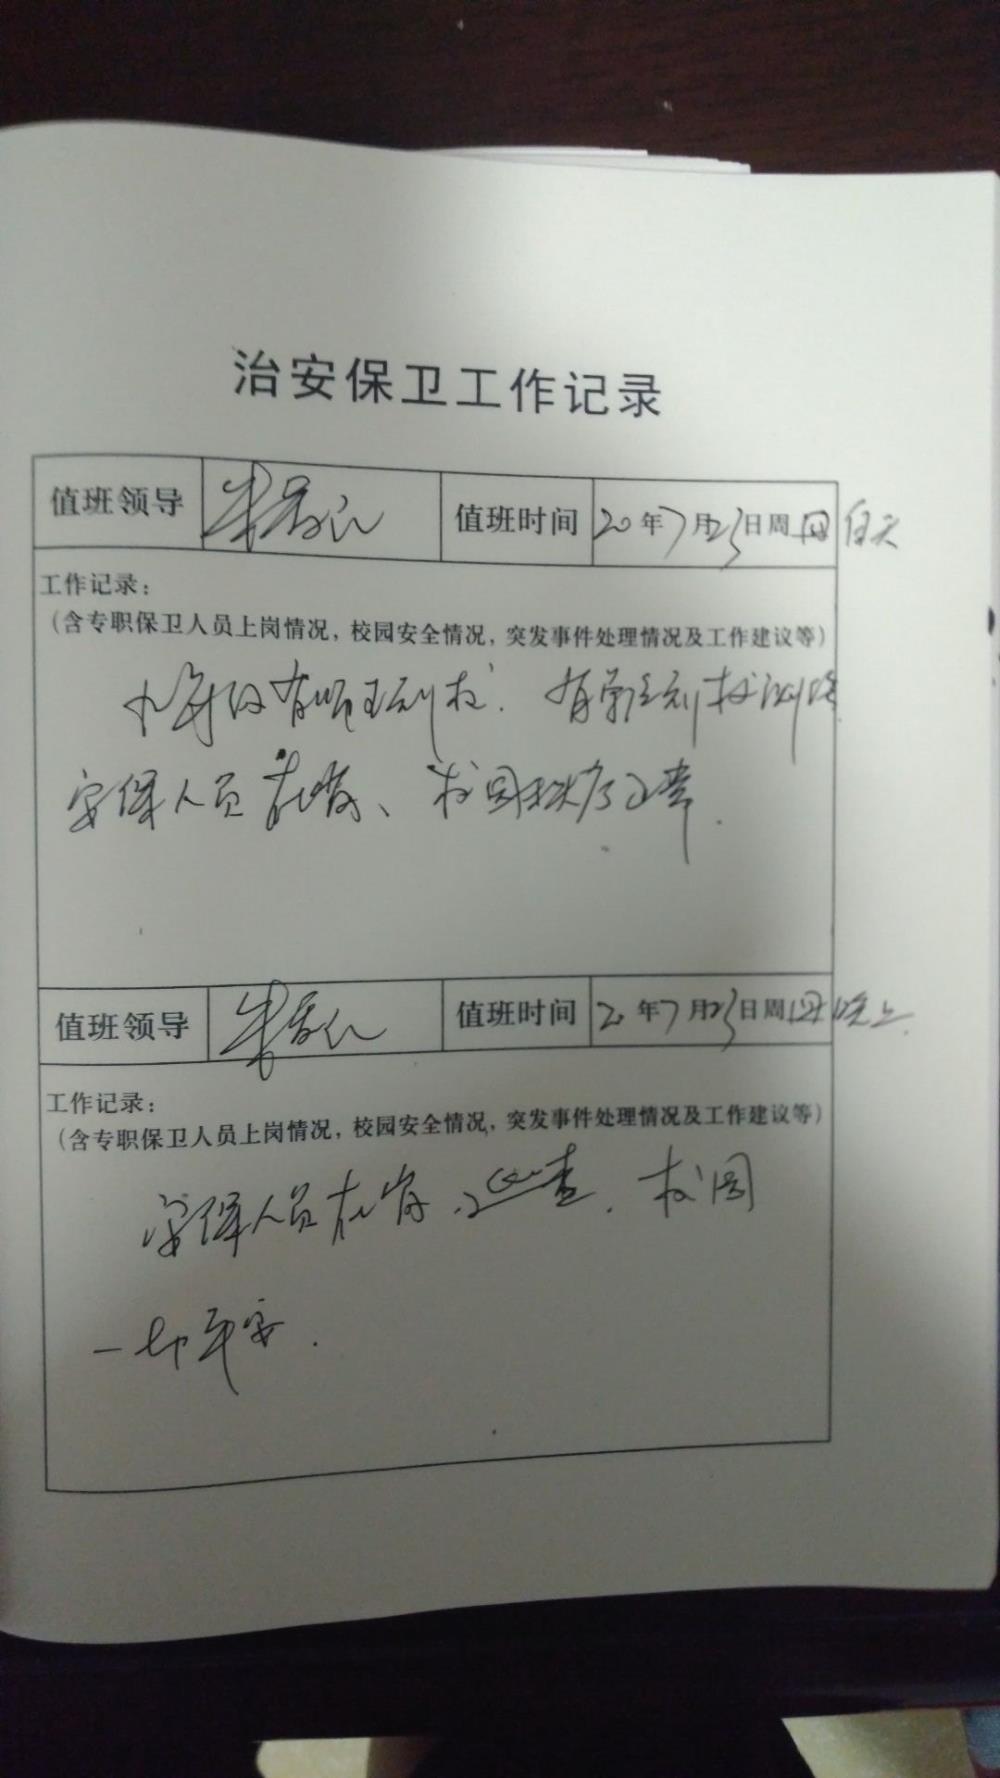 治安保卫工作记录
值班领导 值班时间 20年7月23日周四 白天
工作记录：
（含专职保卫人员上岗情况，校园安全情况，突发事件处理情况及工作建议等）
有 到校. 有 到校
安保人员在岗、校园秩序正常.
值班领导 值班时间 20年7月23日周四 晚上
工作记录：
（含专职保卫人员上岗情况，校园安全情况，突发事件处理情况及工作建议等）
安保人员在岗.巡查.校园
一切平安.